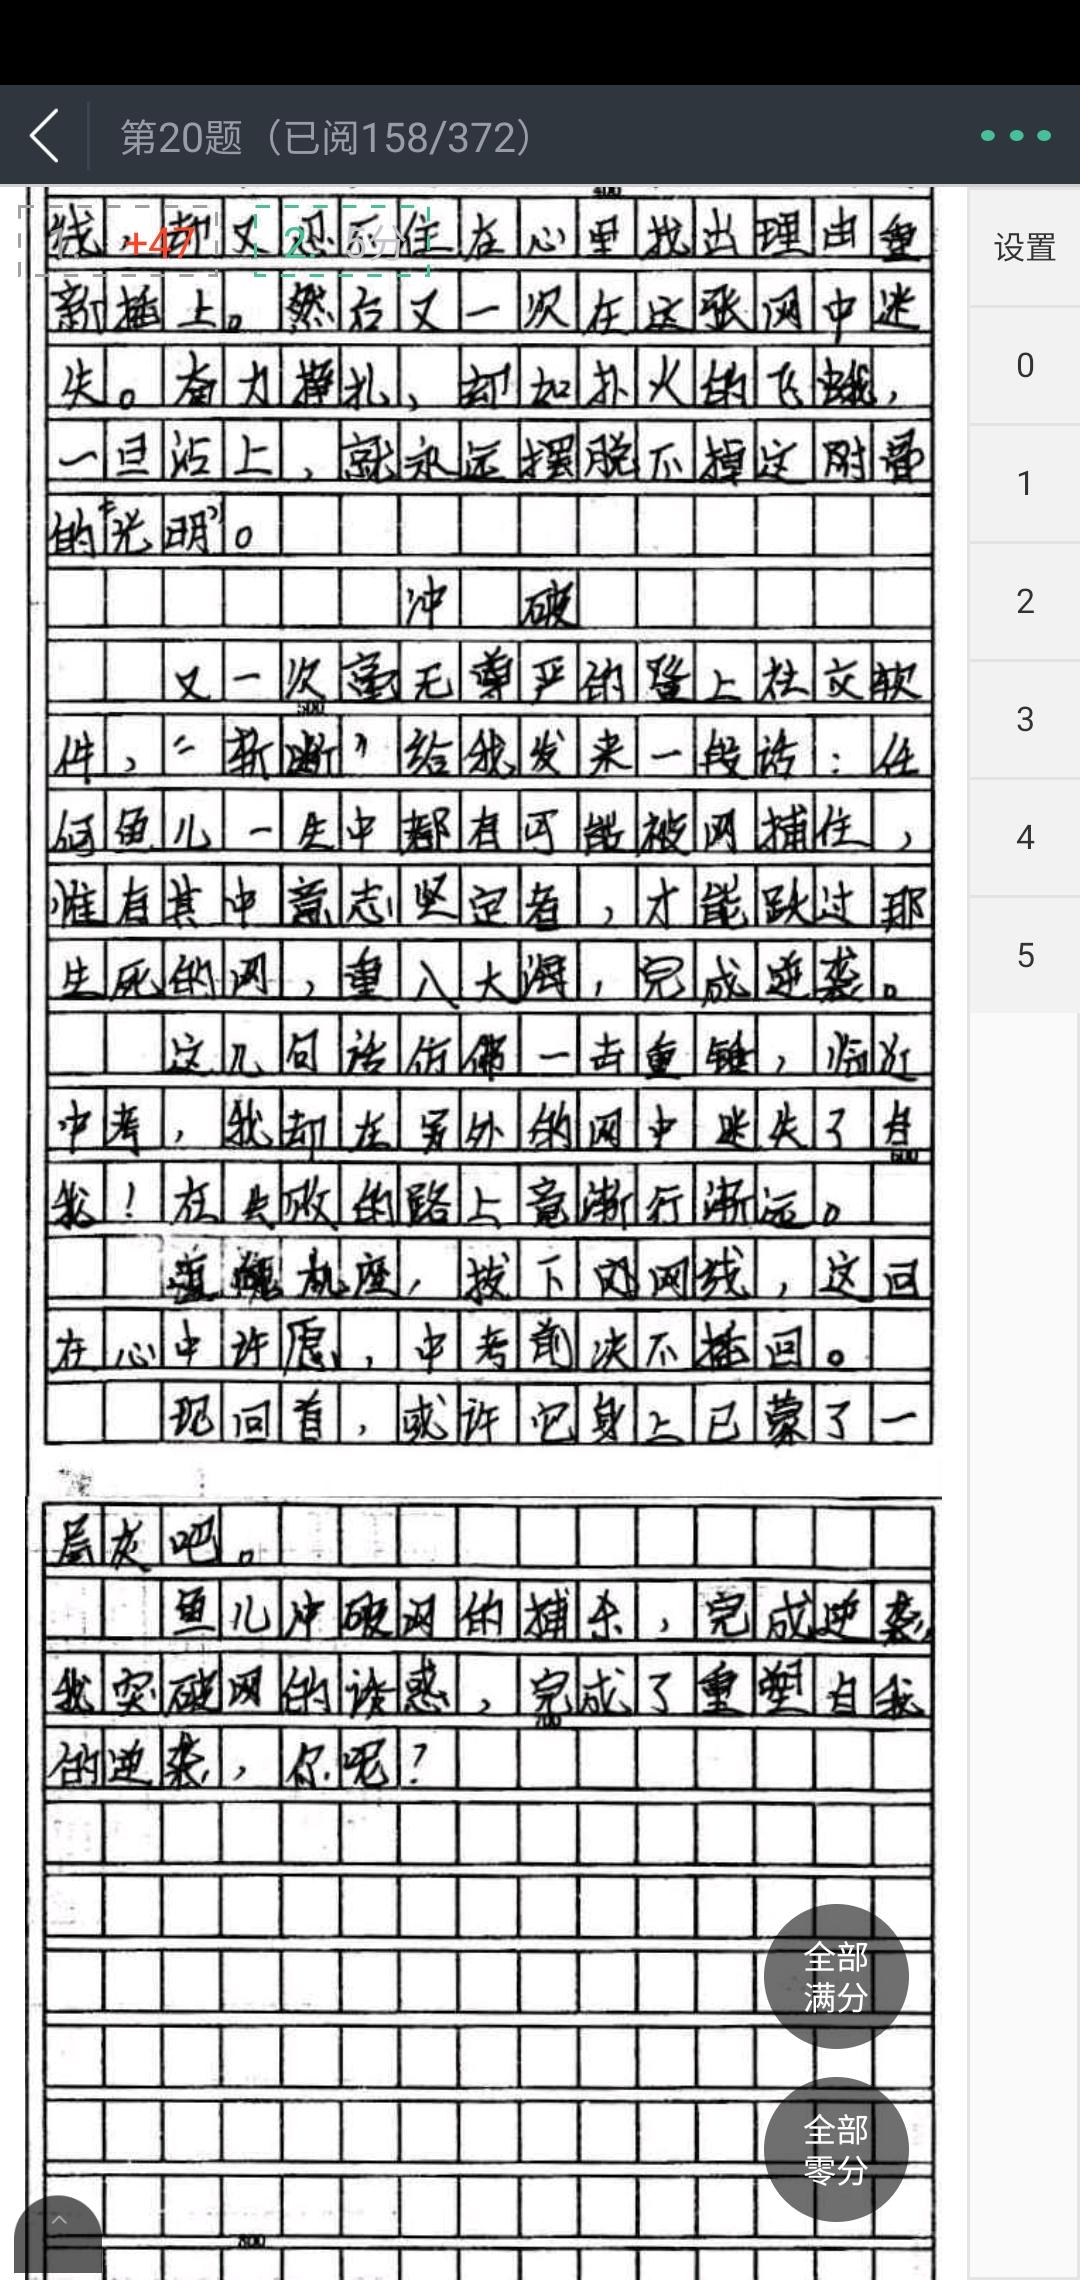 第20题（已阅158/372）
设置
0
1
2
3
4
5
400
+47
2. 5分
线，却又忍不住在心里找出理由重
新插上。然后又一次在这张网中迷
失。奋力挣扎，却如扑火的飞蛾，
一旦沾上，就永远摆脱不掉这附骨
的“光明”。
冲 破
又一次毫无尊严的登上社交软
500
件，“斩断”给我发来一段话：任
何鱼儿一生中都有可能被网捕住，
惟有其中意志坚定者，才能跃过那
生死的网，重入大海，完成逆袭。
这几句话仿佛一击重锤，临近
中考，我却在另外的网中迷失了自
600
我！在失败的路上竟渐行渐远。
机座，拔下网线，这回
在心中许愿，中考前决不插回。
现回首，或许它身上已蒙了一
层灰吧。
鱼儿冲破网的捕杀，完成逆袭，
我突破网的诱惑，完成了重塑自我
700
的逆袭，你呢？
全部
满分
全部
零分
800